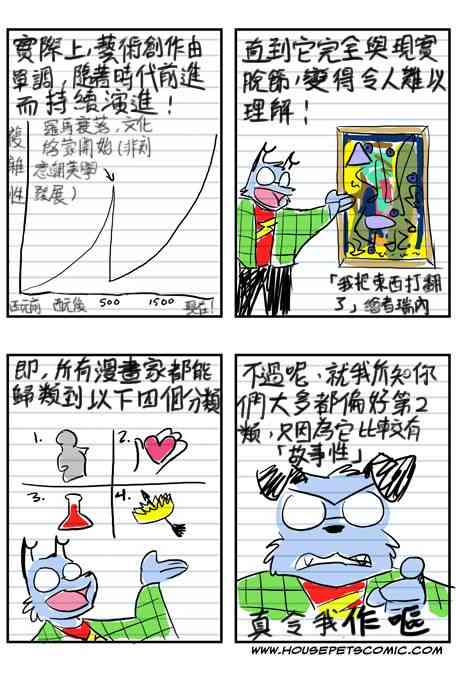 實際上，藝術創作由
單調，隨著時代前進
而持續演進！
複雜性
羅馬衰落，文化
啓蒙開始（非刻
意謝美學
發展）
西元前 西元後 500 1500 現在！
直到它完全與現實
脫節，變得令人難以
理解！
「我把東西打翻
了」繪者瑞內
即，所有漫畫家都能
歸類到以下四個分類
1. 2.
3. 4.
不過呢，就我所知你
們大多都偏好第2
類，只因為它比較有
「故事性」
真令我作嘔
WWW.HOUSEPETSCOMIC.COM